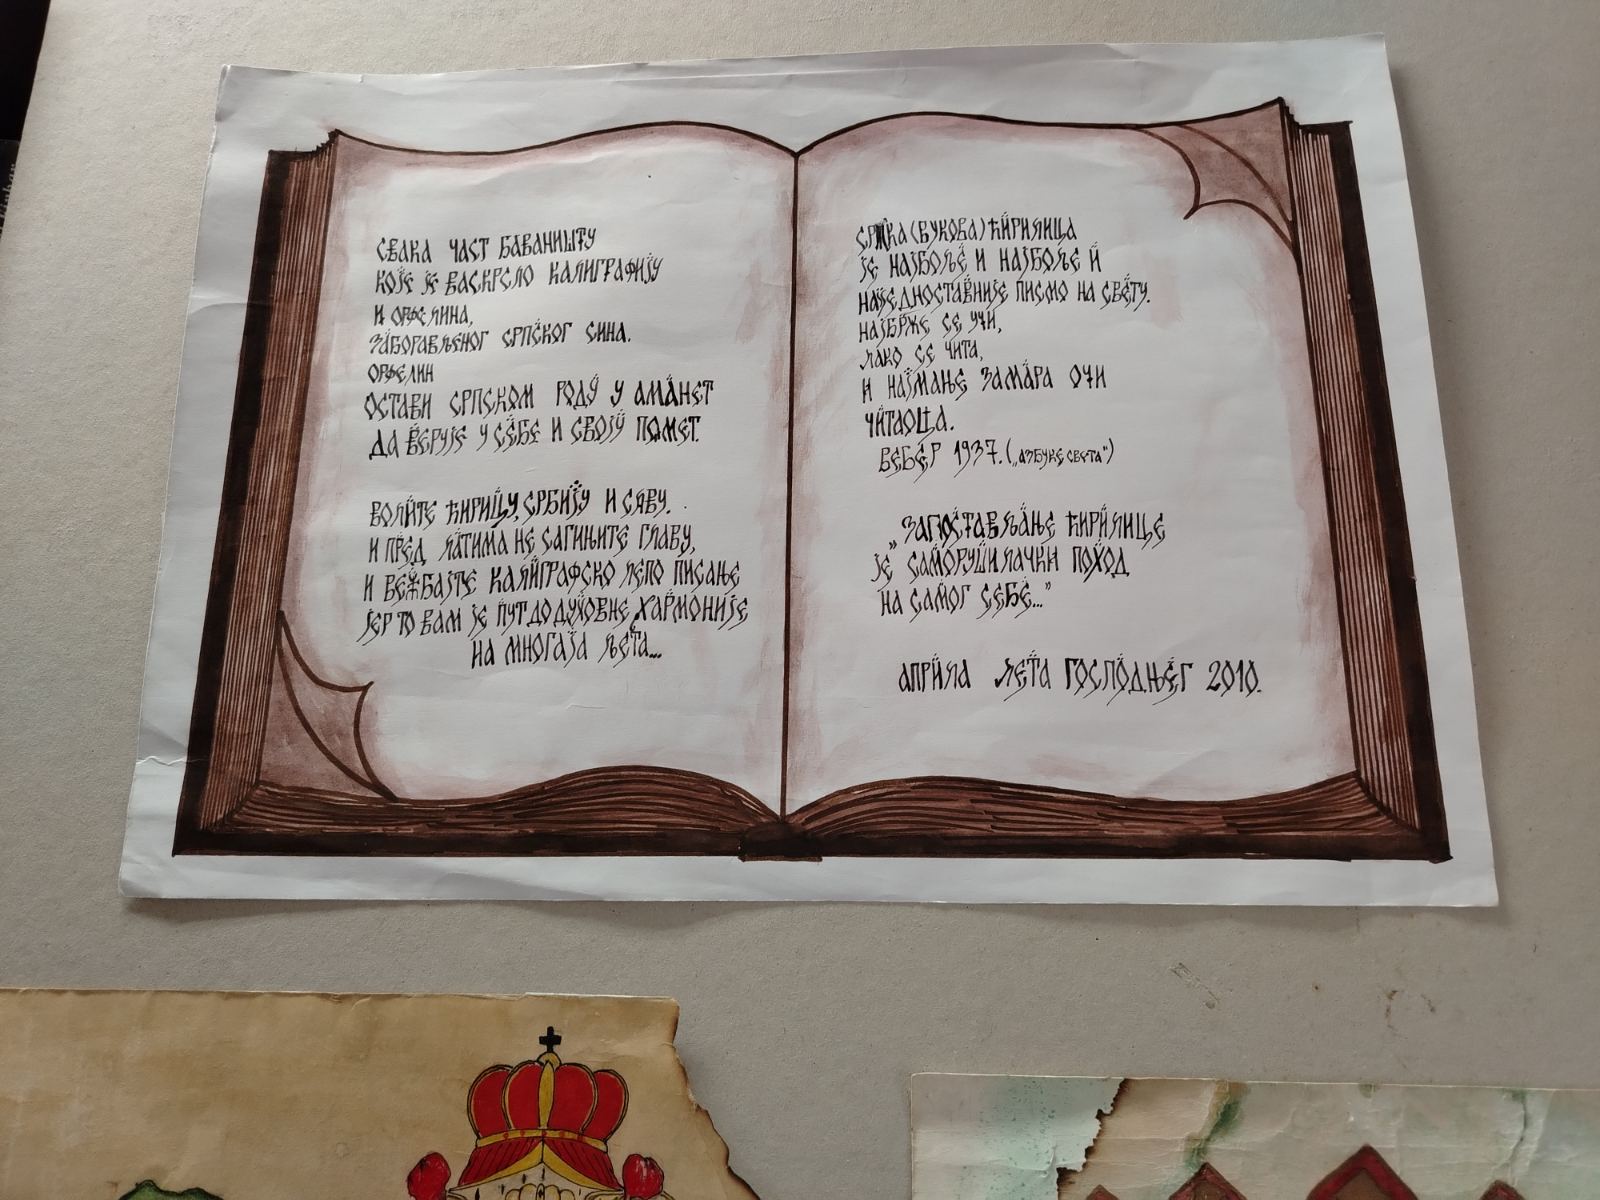 СВАКА ЧАСТ БАВАНИШТУ
КОЈЕ ЈЕ ВАСКРСЛО КАЛИГРАФИЈУ
И ОРФЕЛИНА,
ЗАБОРАВЉЕНОГ СРПСКОГ СИНА.
ОРФЕЛИН
ОСТАВИ СРПСКОМ РОДУ У АМАНЕТ
ДА ВЕРУЈЕ У СЕБЕ И СВОЈУ ПОМЕТ.
ВОЛИТЕ ЋИРИЦУ, СРБИЈУ И САВУ.
И ПРЕД ЛАТИМА НЕ САГИЊИТЕ ГЛАВУ,
И ВЕЖБАЈТЕ КАЛИГРАФСКО ЛЕПО ПИСАЊЕ
ЈЕР ТО ВАМ ЈЕ ПУТ ДО ДУХОВНЕ ХАРМОНИЈЕ
НА МНОГАЈА ЉЕТА...
СРПСКА (ВУКОВА) ЋИРИЛИЦА
ЈЕ НАЈБОЉЕ И НАЈБОЉЕ И
НАЈЕДНОСТАВНИЈЕ ПИСМО НА СВЕТУ.
НАЈБРЖЕ СЕ УЧИ,
ЛАКО СЕ ЧИТА,
И НАЈМАЊЕ ЗАМАРА ОЧИ
ЧИТАОЦА.
ВЕБЕР 1937. („АЗБУКЕ СВЕТА")
„ЗАПОСТАВЉАЊЕ ЋИРИЛИЦЕ
ЈЕ САМОРУШИЛАЧКИ ПОХОД
НА САМОГ СЕБЕ..."
АПРИЛА ЛЕТА ГОСПОДЊЕГ 2010.